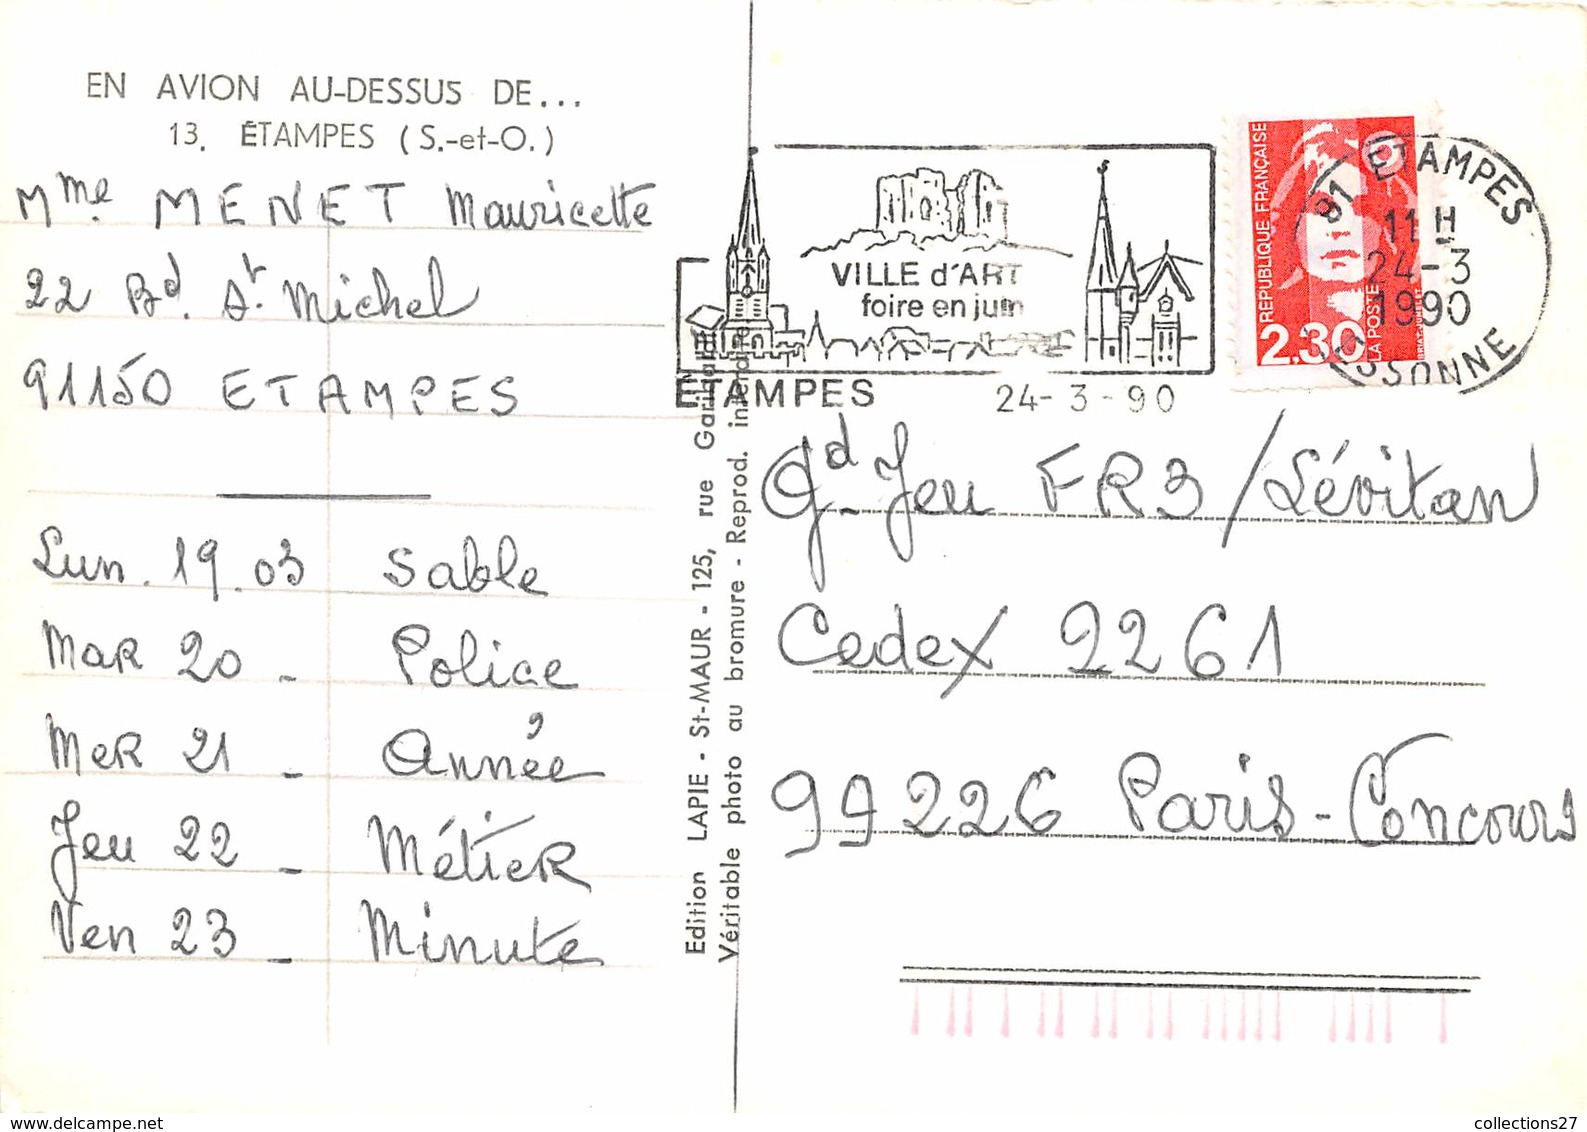 EN AVION AU-DESSUS DE...
13. ÉTAMPES (S.-et-O.)
Mme MENET Mauricette
22 Bd. St Michel
91150 ETAMPES
Lun. 19.03 Sable
MAR 20 - Police
MER 21 - Année
Jeu 22 - MétieR
Ven 23 - Minute
Edition LAPIE - St-MAUR - 125, rue Garibaldi
Véritable photo au bromure - Reprod. interdite
VILLE d'ART
foire en juin
ETAMPES
24-3-90
RÉPUBLIQUE FRANÇAISE
2.30
LA POSTE
91 ETAMPES
11 H
24-3
1990
ESSONNE
Gd Jeu FR3/Lévitan
Cedex 2261
99226 Paris-Concours
collections27